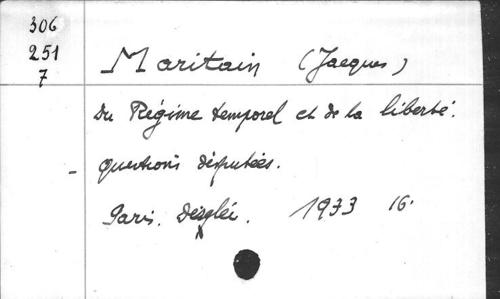 306
251
7
Maritain (Jacques)
Du Régime temporel et de la liberté.
Questions disputées.
Paris. 1933 16.